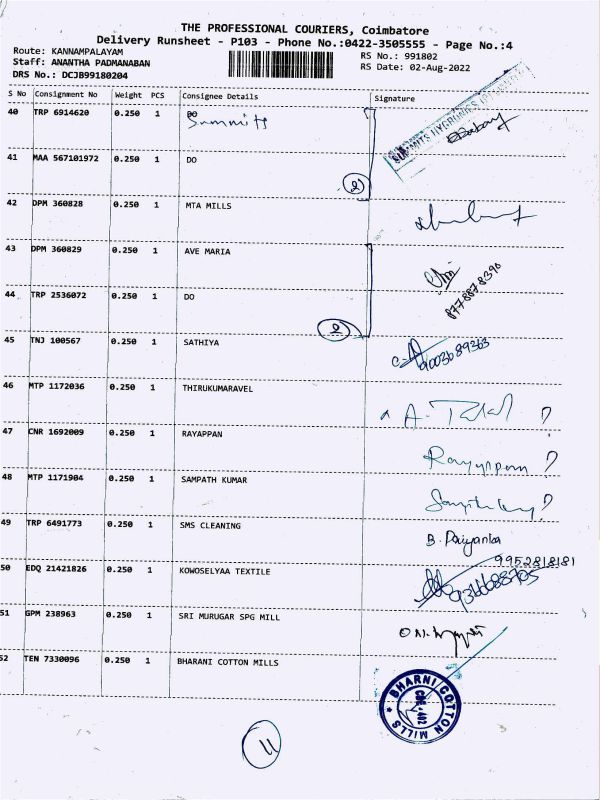 THE PROFESSIONAL COURIERS, Coimbatore
Delivery Runsheet - P103 - Phone No.:0422-3505555 - Page No.:4
Route: KANNAMPALAYAM
Staff: ANANTHA PADMANABAN
DRS No.: DCJB99180204
RS No.: 991802
RS Date: 02-Aug-2022
S No Consignment No Weight PCS Consignee Details Signature
40 TRP 6914620 0.250 1 DO Summits
41 MAA 567101972 0.250 1 DO
2
42 DPM 360828 0.250 1 MTA MILLS
43 DPM 360829 0.250 1 AVE MARIA
8778878390
44 TRP 2536072 0.250 1 DO
2
45 TNJ 100567 0.250 1 SATHIYA
9003689363
46 MTP 1172036 0.250 1 THIRUKUMARAVEL
47 CNR 1692009 0.250 1 RAYAPPAN
48 MTP 1171904 0.250 1 SAMPATH KUMAR
49 TRP 6491773 0.250 1 SMS CLEANING B. Priyanka
9952818181
50 EDQ 21421826 0.250 1 KOWOSELYAA TEXTILE
51 GPM 238963 0.250 1 SRI MURUGAR SPG MILL
52 TEN 7330096 0.250 1 BHARANI COTTON MILLS
BHARNI COTTON MILLS
11